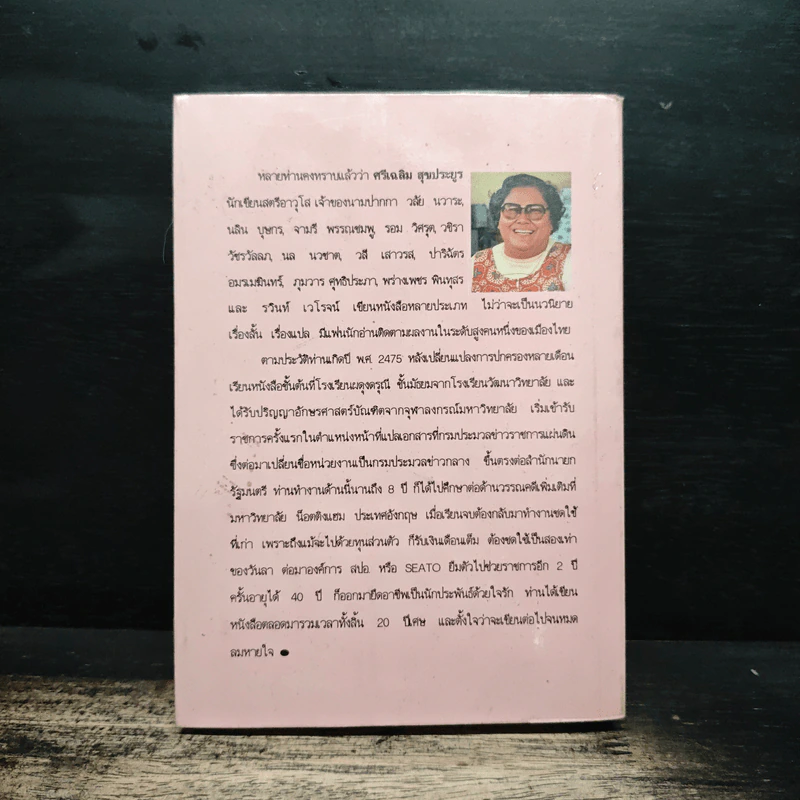 หลายท่านคงทราบแล้วว่า ศรีเฉลิม สุขประยูร
นักเขียนสตรีอาวุโส เจ้าของนามปากกา วลัย นวาระ,
นลิน บุษกร, จามรี พรรณชมพู, รอม วิศรุต, วชิรา
วัชรวัลลภ, นล นวชาต, วสี เสาวรส, ปาริฉัตร
อมรเมฆินทร์, ภุมวาร ศุทธิประภา, พร่างเพชร พินทุสร
และ รวินท์ เวโรจน์ เขียนหนังสือหลายประเภท ไม่ว่าจะเป็นนวนิยาย
เรื่องสั้น เรื่องแปล มีแฟนนักอ่านติดตามผลงานในระดับสูงคนหนึ่งของเมืองไทย
ตามประวัติท่านเกิดปี พ.ศ. 2475 หลังเปลี่ยนแปลงการปกครองหลายเดือน
เรียนหนังสือชั้นต้นที่โรงเรียนผดุงดรุณี ชั้นมัธยมจากโรงเรียนวัฒนาวิทยาลัย และ
ได้รับปริญญาอักษรศาสตร์บัณฑิตจากจุฬาลงกรณ์มหาวิทยาลัย เริ่มเข้ารับ
ราชการครั้งแรกในตำแหน่งหน้าที่แปลเอกสารที่กรมประมวลข่าวราชการแผ่นดิน
ซึ่งต่อมาเปลี่ยนชื่อหน่วยงานเป็นกรมประมวลข่าวกลาง ขึ้นตรงต่อสำนักนายก
รัฐมนตรี ท่านทำงานด้านนี้นานถึง 8 ปี ก็ได้ไปศึกษาต่อด้านวรรณคดีเพิ่มเติมที่
มหาวิทยาลัย น็อตติงแฮม ประเทศอังกฤษ เมื่อเรียนจบต้องกลับมาทำงานชดใช้
ที่เก่า เพราะถึงแม้จะไปด้วยทุนส่วนตัว ก็รับเงินเดือนเต็ม ต้องชดใช้เป็นสองเท่า
ของวันลา ต่อมาองค์การ สปอ. หรือ SEATO ยืมตัวไปช่วยราชการอีก 2 ปี
ครั้นอายุได้ 40 ปี ก็ออกมายึดอาชีพเป็นนักประพันธ์ด้วยใจรัก ท่านได้เขียน
หนังสือตลอดมารวมเวลาทั้งสิ้น 20 ปีเศษ และตั้งใจว่าจะเขียนต่อไปจนหมด
ลมหายใจ ●